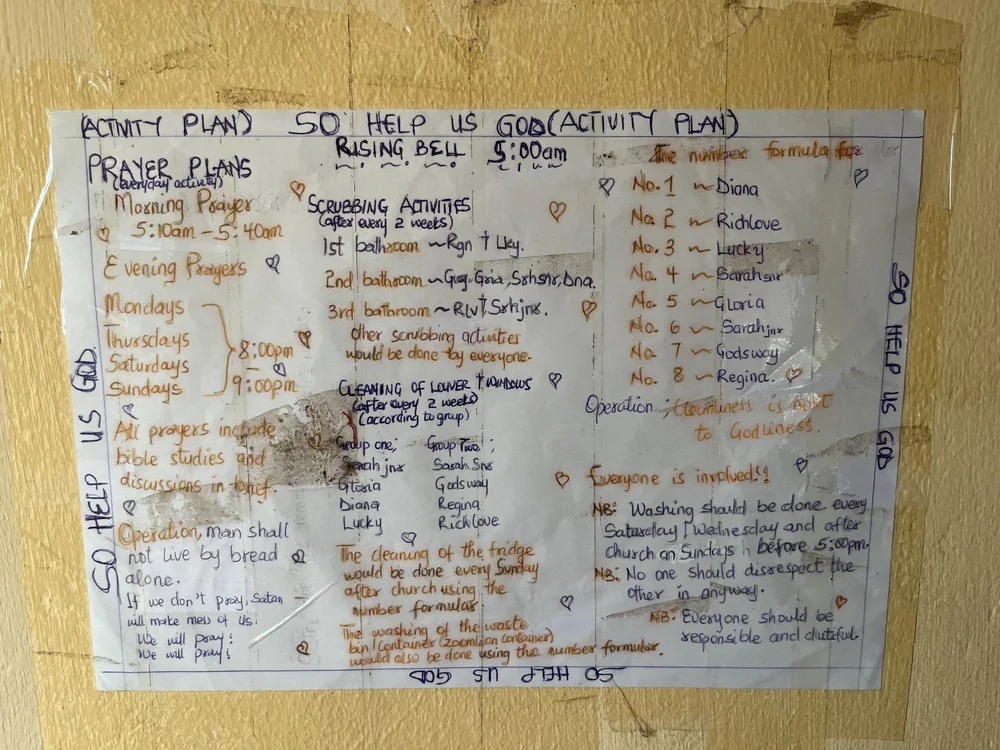 (ACTIVITY PLAN) SO HELP US GOD (ACTIVITY PLAN)
RISING BELL 5:00am
PRAYER PLANS
(everyday activity)
Morning Prayer
5:10am - 5:40am
Evening Prayers
Mondays
Thursdays
Saturdays
Sundays
8:00pm
-
9:00pm
All prayers include
bible studies and
discussions in brief.
Operation, man shall
not live by bread
alone.
If we don't pray, Satan
will make mess of us!
We will pray!
We will pray!
SCRUBBING ACTIVITIES
(after every 2 weeks)
1st bathroom ~ Rgn † Lky.
2nd bathroom ~ Gdy, Gria, Srhsnr, Dna.
3rd bathroom ~ Rlv † Srhjnr.
Other scrubbing activities
would be done by everyone.
CLEANING OF LOUVER † WINDOWS
(after every 2 weeks)
(according to group)
Group one; Group Two;
Sarah jnr Sarah Snr
Gloria Godsway
Diana Regina
Lucky Richlove
The cleaning of the fridge
would be done every Sunday
after church using the
number formular
The washing of the waste
bin/container (zoomlion container)
would also be done using the number formular.
The number formula for
No. 1 ~ Diana
No. 2 ~ Richlove
No. 3 ~ Lucky
No. 4 ~ Sarah snr
No. 5 ~ Gloria
No. 6 ~ Sarah jnr
No. 7 ~ Godsway
No. 8 ~ Regina.
Operation; Cleanliness is next
to Godliness.
Everyone is involved!!
NB: Washing should be done every
Saturday, Wednesday and after
church on Sundays before 5:00pm.
NB: No one should disrespect the
other in anyway.
NB: Everyone should be
responsible and dutiful.
SO HELP US GOD.
SO HELP US GOD
SO HELP US GOD